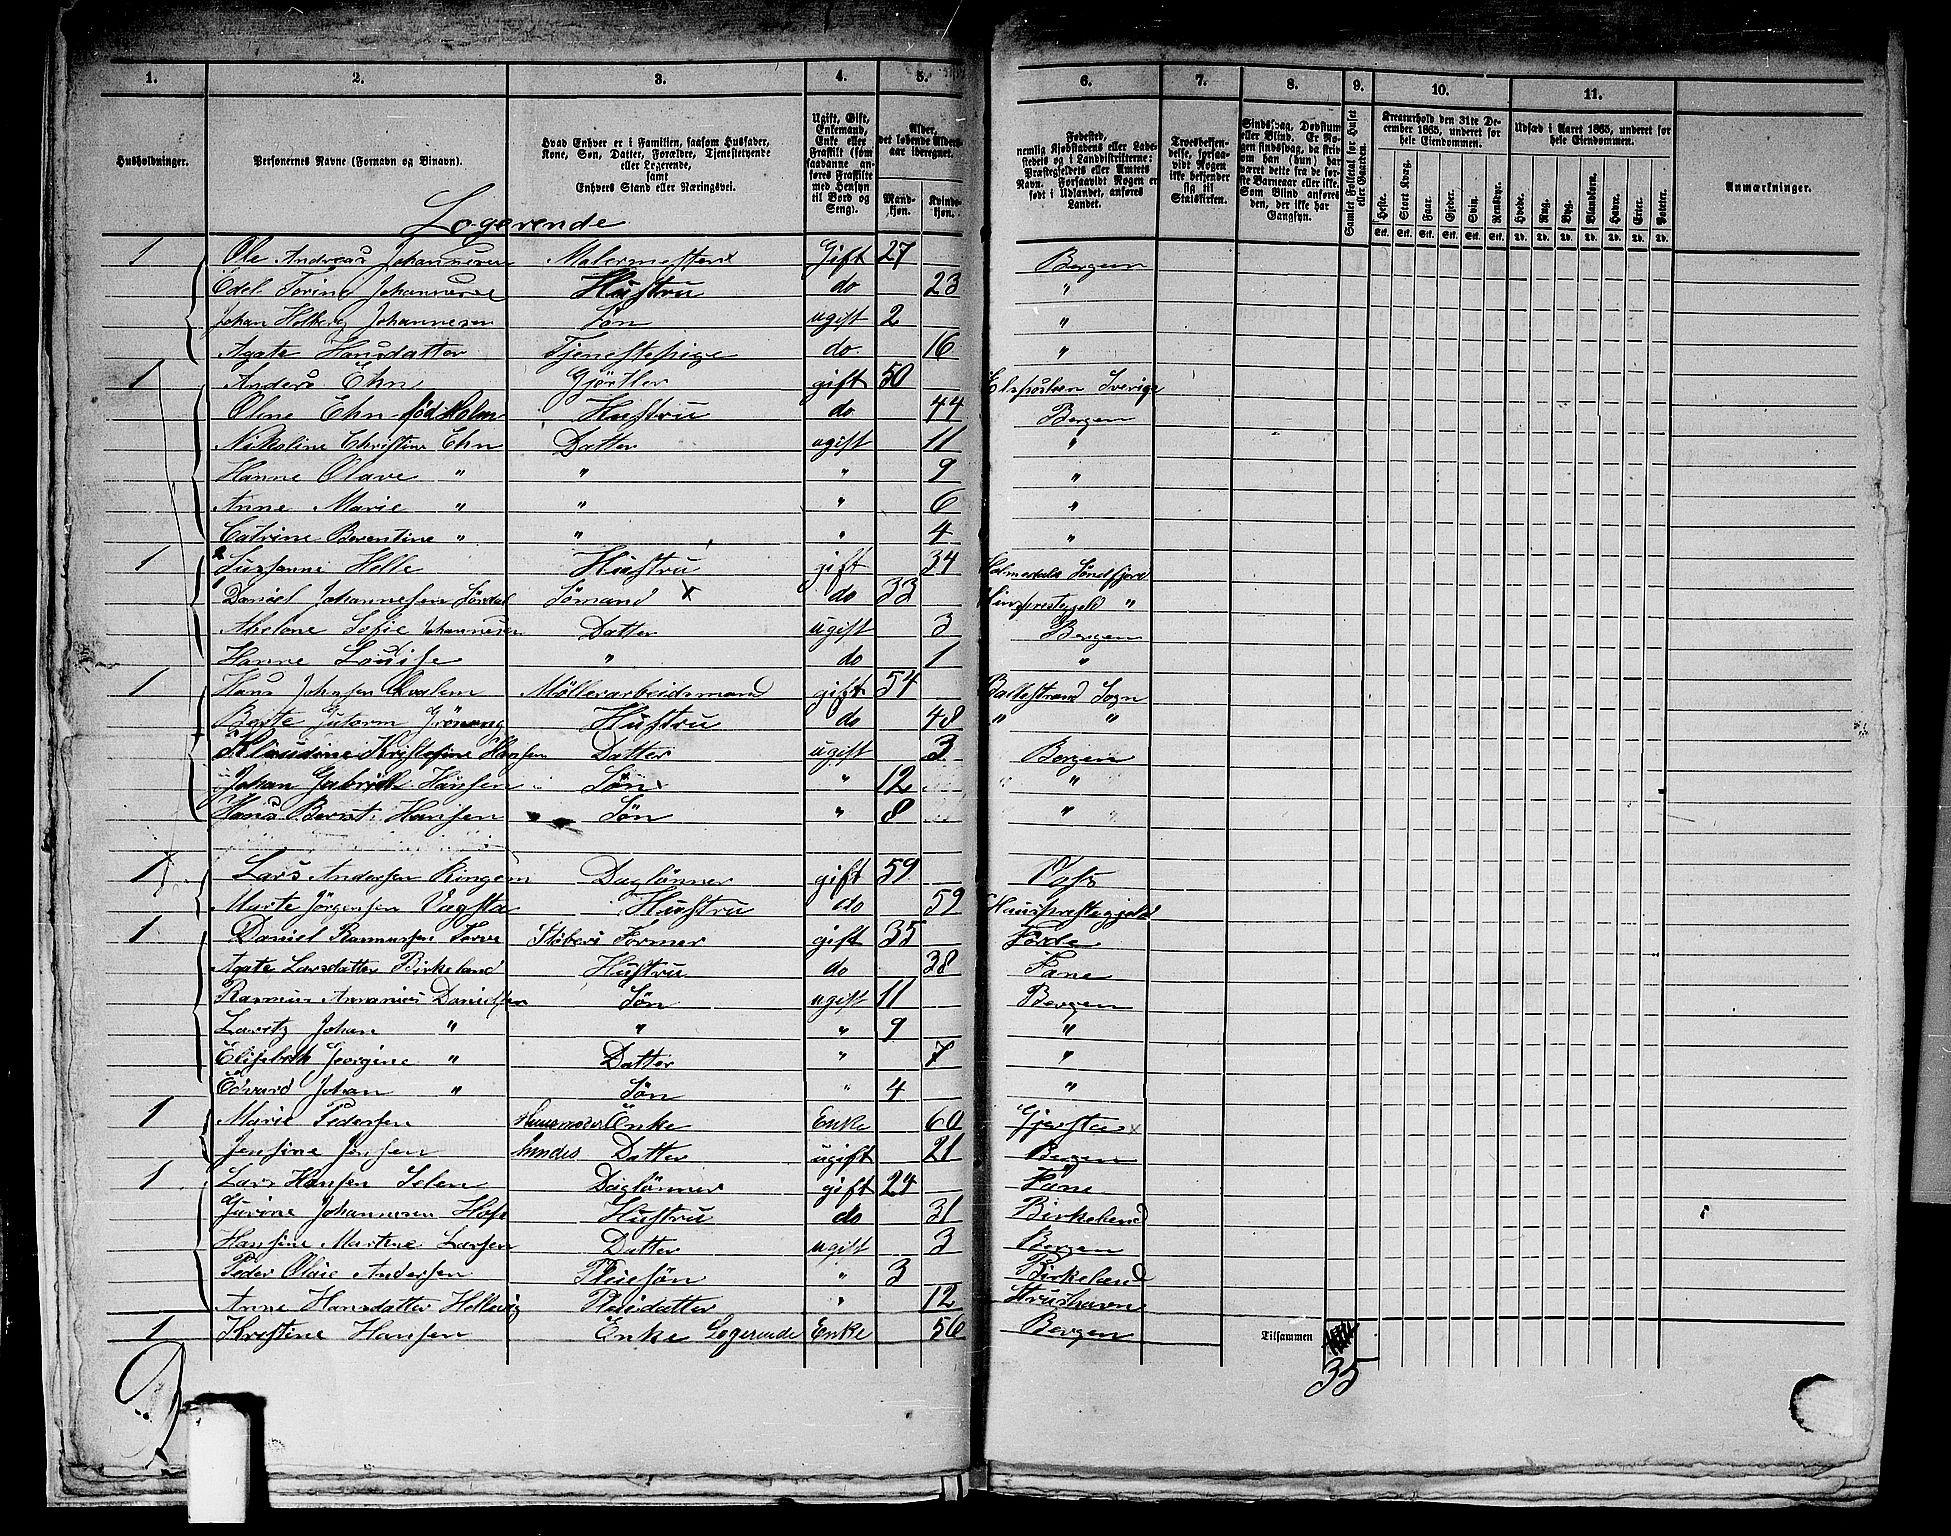 1. 2. 3. 4. 5. 6. 7. 8. 9. 10. 11.
Husholdninger.
Personernes Navne (Fornavn og Tilnavn).
Hvad Enhver er i Familien, saasom Husfader, Kone, Søn, Datter, Forældre, Tjenestetyende eller Logerende, samt Enhvers Stand eller Næringsvei.
Ugift, Gift, Enkemand, Enke eller Fraskilt (som saadanne anføres Fraskilte med Hensyn til Bord og Seng).
Alder, det løbende Alders-aar iberegnet.
Mand-kjøn. Kvinde-kjøn.
Fødested, nemlig Kjøbstadens eller Ladestedets og i Landdistrikterne: Præstegjeldets eller Amtets Navn. Forsaavidt Nogen er født i Udlandet, anføres Landet.
Troesbekjendelse, forsaavidt Nogen ikke bekjender sig til Statskirken.
Sindssvag, Døvstum eller Blind. Er Nogen sindssvag, da skrives om han (hun) har været dette fra de første Barneaar eller ikke. Som Blind anføres den, der ikke har Gangsyn.
Samlet Folketal for Huset eller Gaarden.
Kreaturhold den 31te December 1865, underet for hele Eiendommen.
Heste. Stort Kvæg. Faar. Gjeder. Sviin. Rensdyr.
Udsæd i Aaret 1865, underet for hele Eiendommen.
Hvede. Rug. Byg. Blandkorn. Havre. Erter. Poteter.
Anmærkninger.
Stk. Stk. Stk. Stk. Stk. Stk. Td. Td. Td. Td. Td. Td. Td.
Logerende
1 Ole Andreas Johannesen Malermester x Gift 27 Bergen
Edel Johannesne Hustru do 23 "
Johan Holberg Johannesen Søn ugift 2 "
Agate Hansdatter Tjenestepige do. 16 "
1 Anders Ehn Gjørtler gift 50 Sverige
Olne Ehn fød Holm Hustru do 44 Bergen
Nikoline Christine Ehn Datter ugift 11 "
Hanne Olave " " " 9 "
Anne Marie " " " 6 "
Catrine Berentine " " " 4 "
1 2 Susanne Helle Hustru gift 34 Holmedals Søndfjord
1 Daniel Johannesen Sømand x do 33 "
Abelone Sofie Johannesen Datter ugift 3 Bergen
Hanne Louise " do 1 "
1 Hans Johnsen Møllerarbeidsmand gift 54 Balkestrand Sogn
Brite Gutorm Hustru do 48 " "
Klaudine Kristofine Hansen Datter ugift 3 Bergen
Johan Gabriel Hansen Søn x " 12 "
Hans Bernt Hansen Søn " 8 "
1 Lars Andersen Ringem Daglønner gift 59 Voss
Marte Jørgensen Vagsta Hustru do 59 Hauspræstegjeld
1 Daniel Rasmusen Former gift 35 Førde
Agate Larsdatter Birkeland Hustru do 38 Fane
Rasmus Annanias Danielsen Søn ugift 11 Bergen
Lavitz Johan " " " 9 "
Elisabeth Georgine " Datter " 7 "
Edvard Johan " Søn " 4 "
1 Marie Pedersen Huusmoder Enke Enke 60 Gjersta x
Jensine Jensen hendes Datter ugift 21 Bergen
1 Lars Hansen Selen Daglønner gift 24 Fane
Gurine Johannesen Hustru do 31 Birkeland
Hansine Martine Larsen Datter ugift 3 Bergen
Peder Olaie Andersen Pleiesøn " 3 Birkeland
Anne Hansdatter Hellevig Pleiedatter " 12 Strushavn
1 Kristine Hansen Enke Logerende Enke 56 Bergen
Tilsammen
35